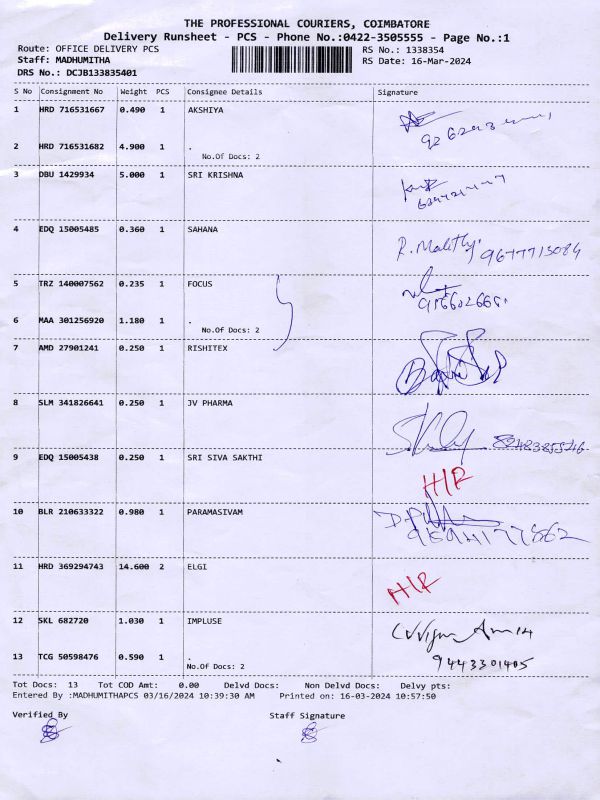 THE PROFESSIONAL COURIERS, COIMBATORE
Delivery Runsheet - PCS - Phone No.:0422-3505555 - Page No.:1
Route: OFFICE DELIVERY PCS RS No.: 1338354
Staff: MADHUMITHA RS Date: 16-Mar-2024
DRS No.: DCJB133835401
S No Consignment No Weight PCS Consignee Details Signature
1 HRD 716531667 0.490 1 AKSHIYA
2 HRD 716531682 4.900 1 .
No.Of Docs: 2
3 DBU 1429934 5.000 1 SRI KRISHNA
4 EDQ 15005485 0.360 1 SAHANA
9677713084
5 TRZ 140007562 0.235 1 FOCUS
6 MAA 301256920 1.180 1 .
No.Of Docs: 2
7 AMD 27901241 0.250 1 RISHITEX
8 SLM 341826641 0.250 1 JV PHARMA
9 EDQ 15005438 0.250 1 SRI SIVA SAKTHI
H/R
10 BLR 210633322 0.980 1 PARAMASIVAM
11 HRD 369294743 14.600 2 ELGI
H/R
12 SKL 682720 1.030 1 IMPLUSE
13 TCG 50598476 0.590 1 . 9443301405
No.Of Docs: 2
Tot Docs: 13 Tot COD Amt: 0.00 Delvd Docs: Non Delvd Docs: Delvy pts:
Entered By :MADHUMITHAPCS 03/16/2024 10:39:30 AM Printed on: 16-03-2024 10:57:50
Verified By Staff Signature